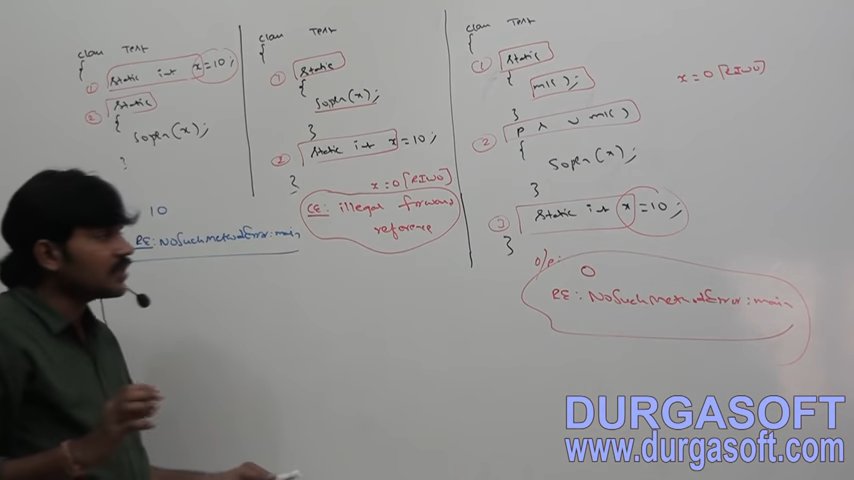 class Test
{
① static int x=10;
② static
{
sopln(x);
}
10
RE: NoSuchMethodError: main
class Test
{
① static
{
sopln(x);
}
② static int x=10;
}
x=0 [RIWO]
CE: illegal forward
reference
class Test
{
① static
{
m1();
}
② p s v m1()
{
sopln(x);
}
③ static int x=10;
}
x=0 [RIWO]
o/p:
0
RE: NoSuchMethodError: main
DURGASOFT
www.durgasoft.com